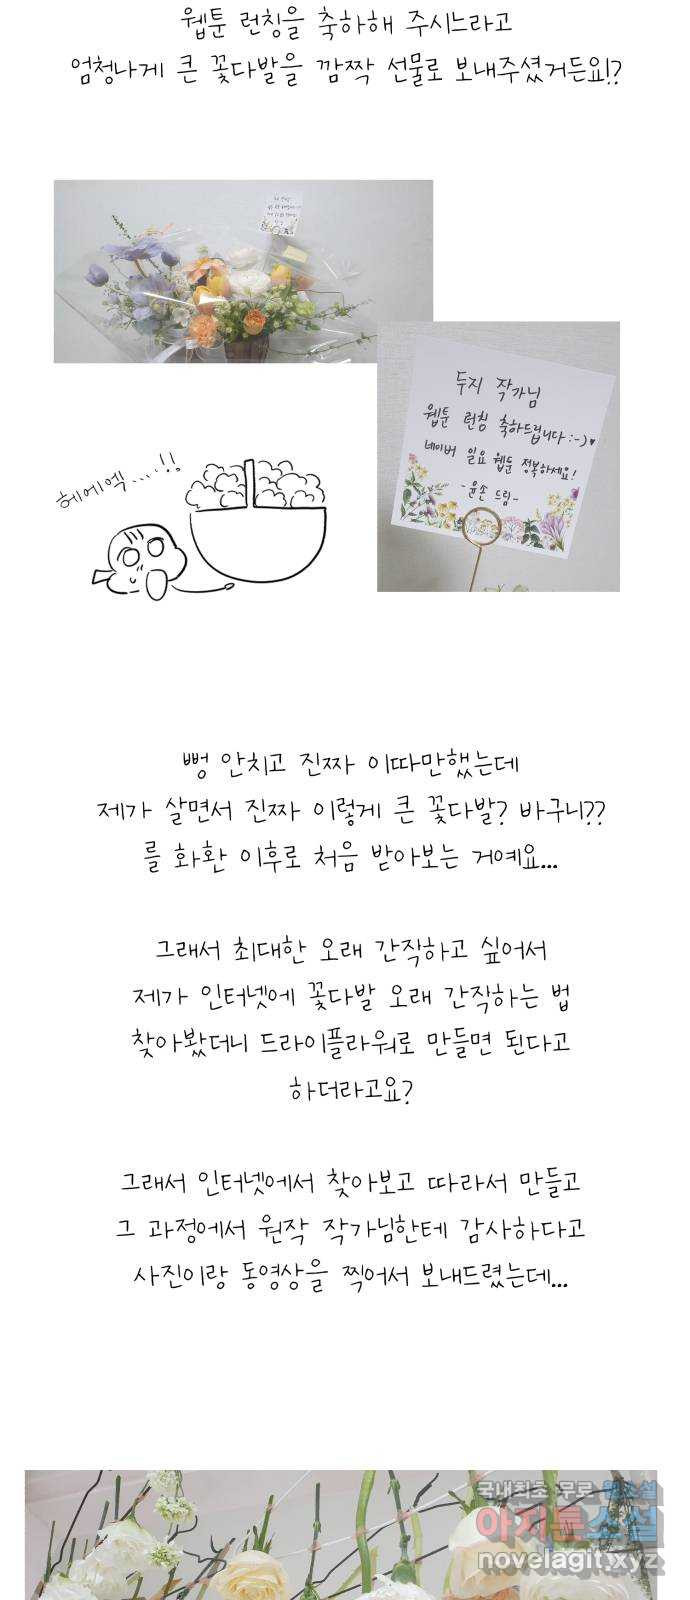 웹툰 런칭을 축하해 주시느라고
엄청나게 큰 꽃다발을 깜짝 선물로 보내주셨거든요!?
두지 작가님
웹툰 런칭 축하드립니다 :-)♥
네이버 일요 웹툰 정복하세요!
-윤손 드림-
헤에엑....!!
뻥 안치고 진짜 이따만했는데
제가 살면서 진짜 이렇게 큰 꽃다발? 바구니??
를 화환 이후로 처음 받아보는 거예요...
그래서 최대한 오래 간직하고 싶어서
제가 인터넷에 꽃다발 오래 간직하는 법
찾아봤더니 드라이플라워로 만들면 된다고
하더라고요?
그래서 인터넷에서 찾아보고 따라서 만들고
그 과정에서 원작 작가님한테 감사하다고
사진이랑 동영상을 찍어서 보내드렸는데...
국내최초 무료 웹소설
아지툰소설
novelagit.xyz